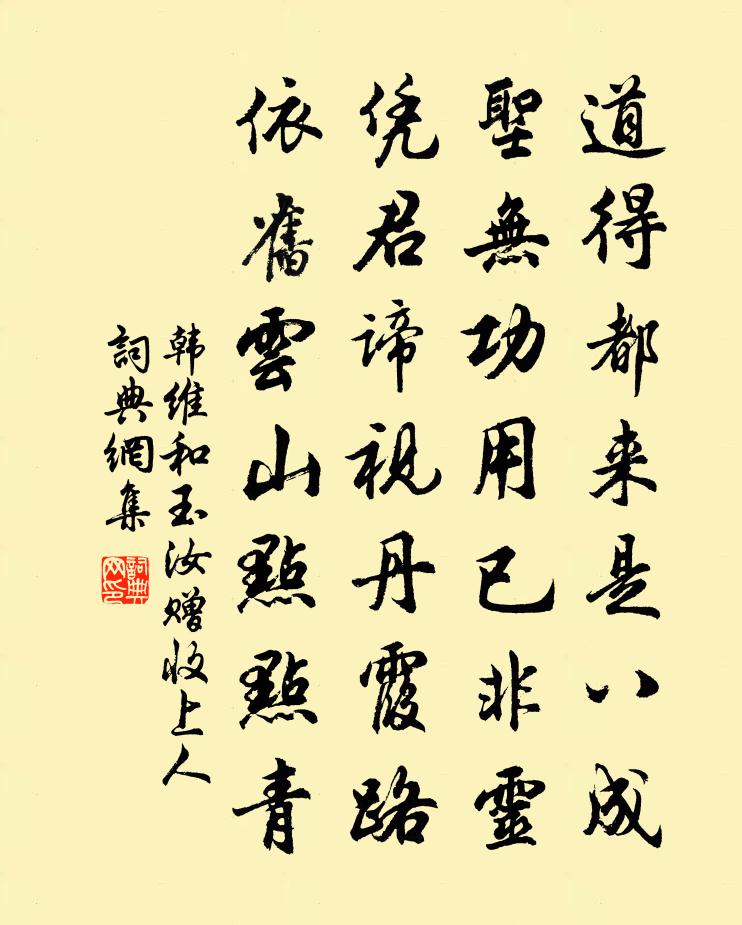 道得都来是八成
聖無功用已非靈
凭君谛視丹霞路
依舊雲山點點青
韩维和玉汝赠收上人
詞典網集
詞典
网印